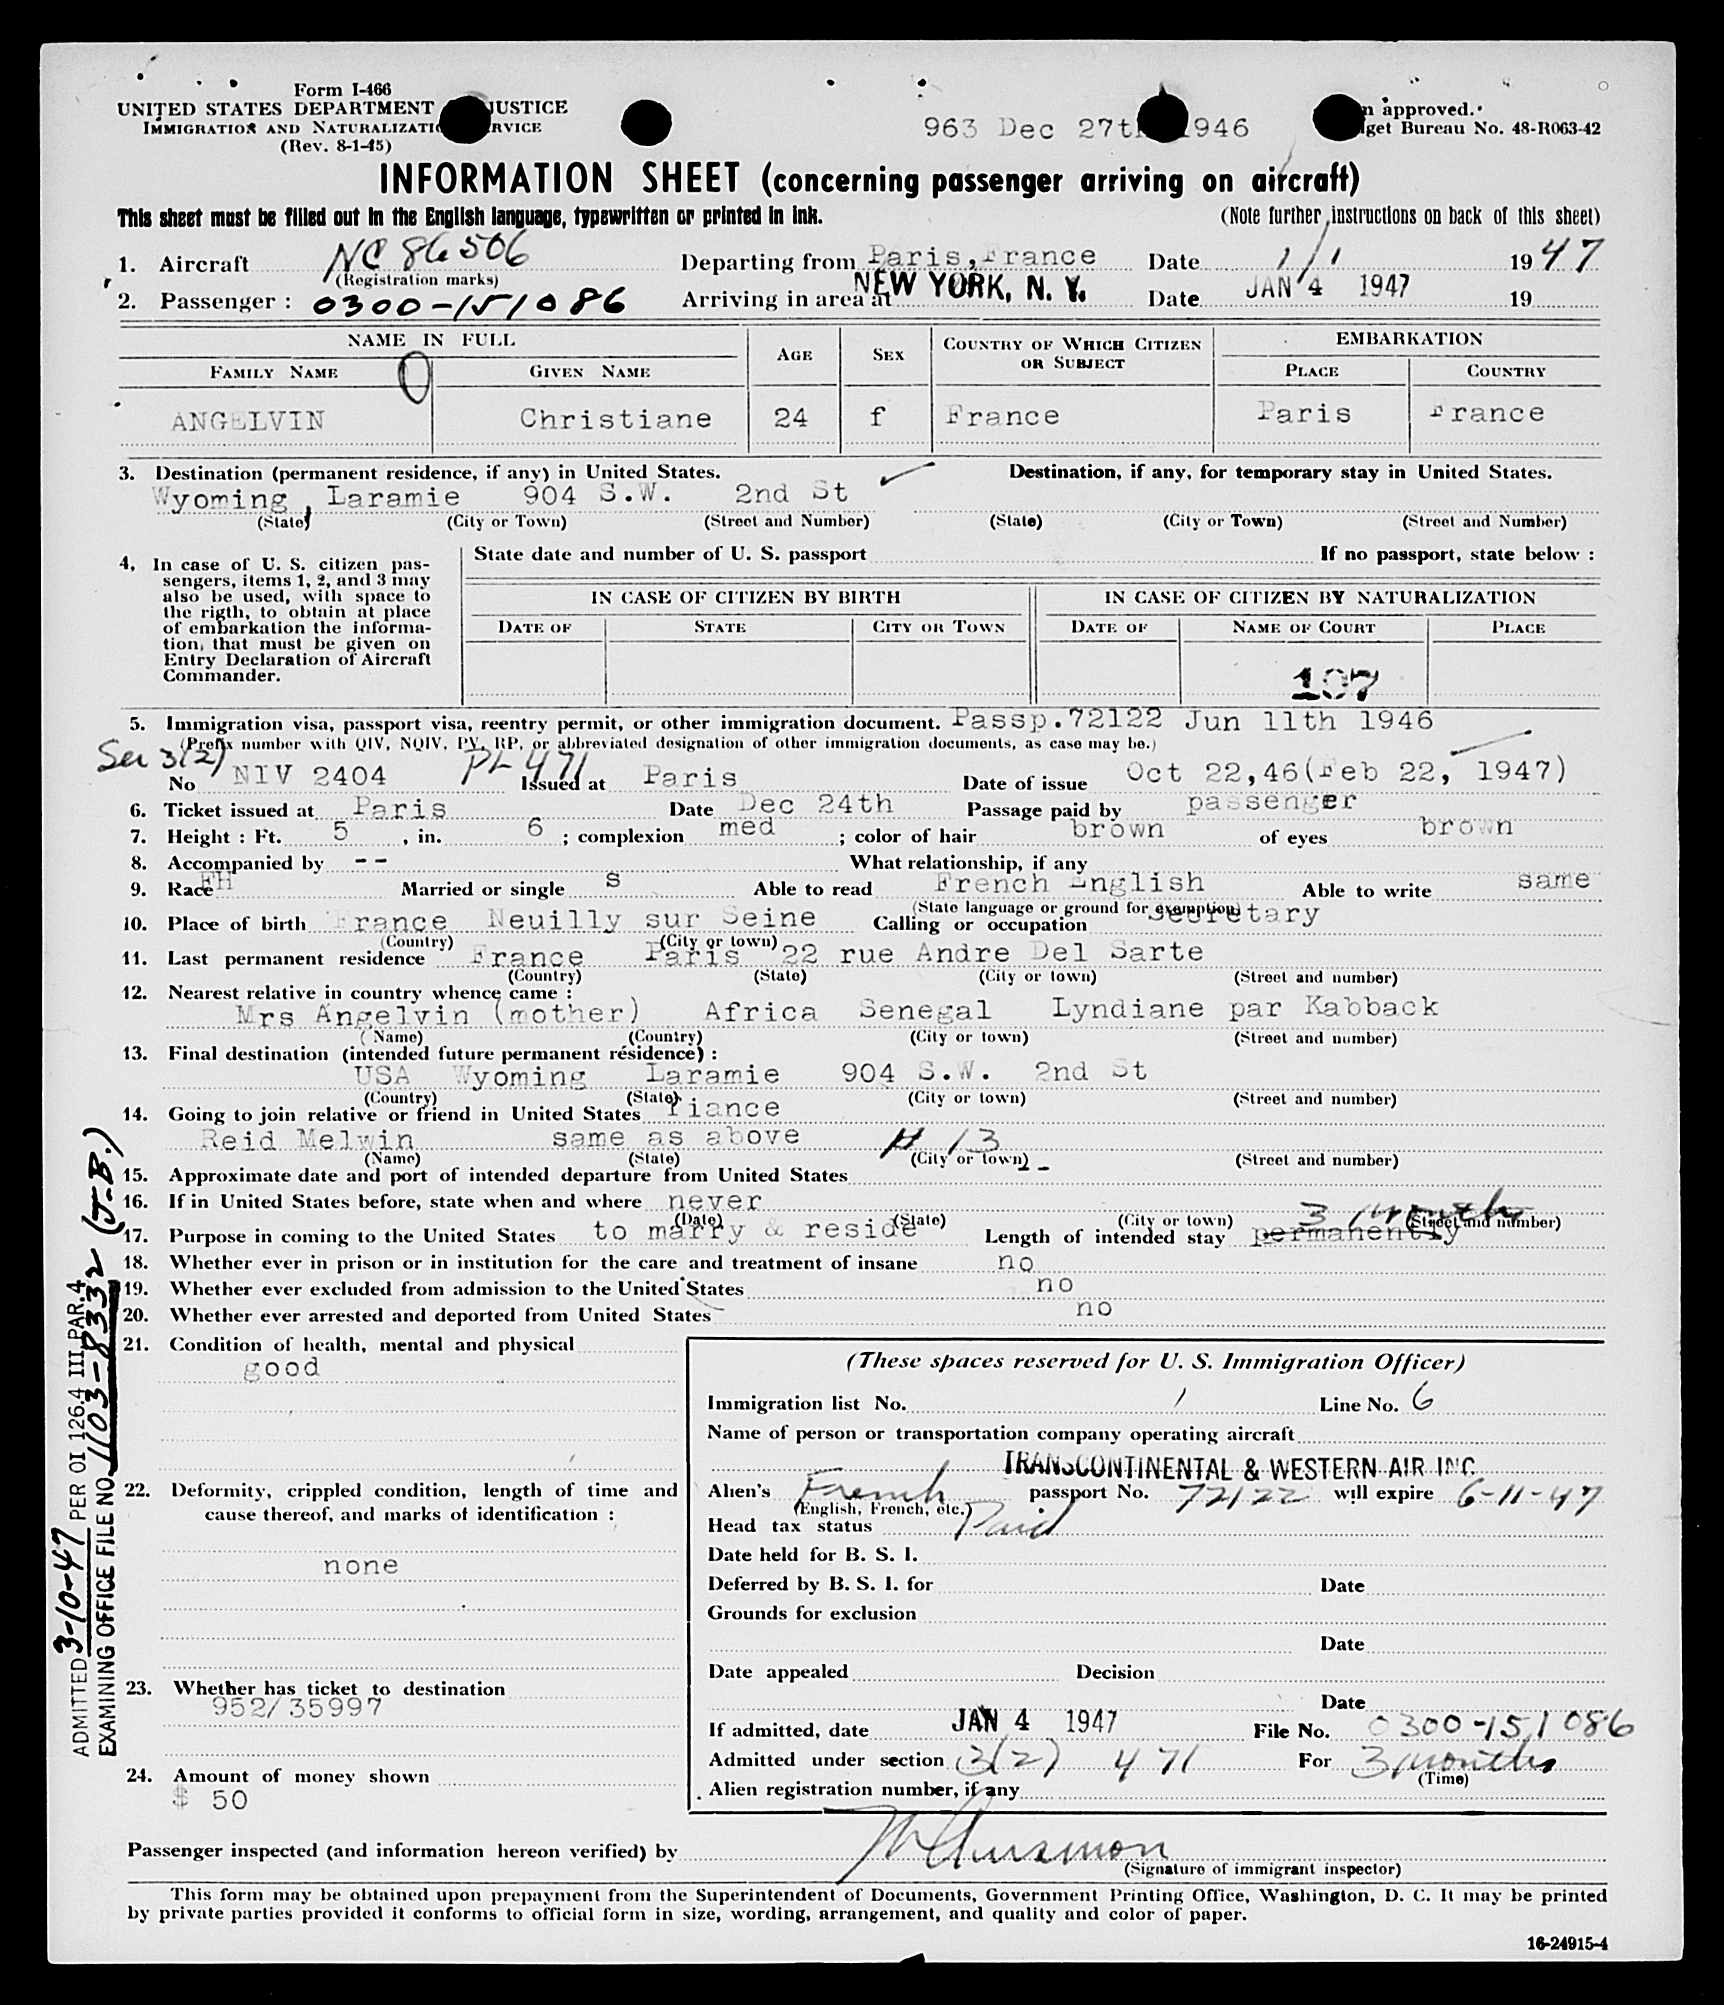 Form I-466
UNITED STATES DEPARTMENT JUSTICE
IMMIGRATION AND NATURALIZATION SERVICE
(Rev. 8-1-45)
963 Dec 27th 1946
approved.
get Bureau No. 48-R063-42
INFORMATION SHEET (concerning passenger arriving on aircraft)
This sheet must be filled out in the English language, typewritten or printed in ink.
(Note further instructions on back of this sheet)
1. Aircraft NC 86506 Departing from Paris, France Date 1/1 1947
(Registration marks)
2. Passenger : 0300-151086 Arriving in area at NEW YORK, N. Y. Date JAN 4 1947 19
NAME IN FULL AGE SEX COUNTRY OF WHICH CITIZEN OR SUBJECT EMBARKATION
FAMILY NAME GIVEN NAME PLACE COUNTRY
ANGELVIN Christiane 24 f France Paris France
3. Destination (permanent residence, if any) in United States. Destination, if any, for temporary stay in United States.
Wyoming, Laramie 904 S.W. 2nd St
(State) (City or Town) (Street and Number) (State) (City or Town) (Street and Number)
4. In case of U. S. citizen pas-
sengers, items 1, 2, and 3 may
also be used, with space to
the rigth, to obtain at place
of embarkation the informa-
tion, that must be given on
Entry Declaration of Aircraft
Commander.
State date and number of U. S. passport If no passport, state below :
IN CASE OF CITIZEN BY BIRTH IN CASE OF CITIZEN BY NATURALIZATION
DATE OF STATE CITY OR TOWN DATE OF NAME OF COURT PLACE
107
5. Immigration visa, passport visa, reentry permit, or other immigration document. Passp.72122 Jun 11th 1946
(Prefix number with QIV, NQIV, PV, RP, or abbreviated designation of other immigration documents, as case may be.)
Sec 3(2) PL 471
No NIV 2404 Issued at Paris Date of issue Oct 22,46(Feb 22, 1947)
6. Ticket issued at Paris Date Dec 24th Passage paid by passenger
7. Height : Ft. 5 , in. 6 ; complexion med ; color of hair brown of eyes brown
8. Accompanied by -- What relationship, if any
9. Race FH Married or single s Able to read French English Able to write same
(State language or ground for exemption)
10. Place of birth France Neuilly sur Seine Calling or occupation secretary
(Country) (City or town)
11. Last permanent residence France Paris 22 rue Andre Del Sarte
(Country) (State) (City or town) (Street and number)
12. Nearest relative in country whence came :
Mrs Angelvin (mother) Africa Senegal Lyndiane par Kabback
(Name) (Country) (City or town) (Street and number)
13. Final destination (intended future permanent résidence) :
USA Wyoming Laramie 904 S.W. 2nd St
(Country) (State) (City or town) (Street and number)
14. Going to join relative or friend in United States fiance
Reid Melwin same as above # 13
(Name) (State) (City or town) (Street and number)
15. Approximate date and port of intended departure from United States --
16. If in United States before, state when and where never
(Date) (State) (City or town) (Street and number)
3 months
17. Purpose in coming to the United States to marry & reside Length of intended stay permanently
18. Whether ever in prison or in institution for the care and treatment of insane no
19. Whether ever excluded from admission to the United States no
20. Whether ever arrested and deported from United States no
21. Condition of health, mental and physical
good
22. Deformity, crippled condition, length of time and
cause thereof, and marks of identification :
none
23. Whether has ticket to destination
952/35997
24. Amount of money shown
$ 50
(These spaces reserved for U. S. Immigration Officer)
Immigration list No. 1 Line No. 6
Name of person or transportation company operating aircraft
TRANSCONTINENTAL & WESTERN AIR INC.
Alien's French passport No. 72122 will expire 6-11-47
(English, French, etc.)
Head tax status Paid
Date held for B. S. I.
Deferred by B. S. I. for Date
Grounds for exclusion
Date
Date appealed Decision
Date
If admitted, date JAN 4 1947 File No. 0300-151086
Admitted under section 3(2) 471 For 3 months
(Time)
Alien registration number, if any
Passenger inspected (and information hereon verified) by
(Signature of immigrant inspector)
This form may be obtained upon prepayment from the Superintendent of Documents, Government Printing Office, Washington, D. C. It may be printed
by private parties provided it conforms to official form in size, wording, arrangement, and quality and color of paper.
16-24915-4
ADMITTED 3-10-47 PER OI 126.4 III PAR.4
EXAMINING OFFICE FILE NO. 1103-8332 (J.B.)